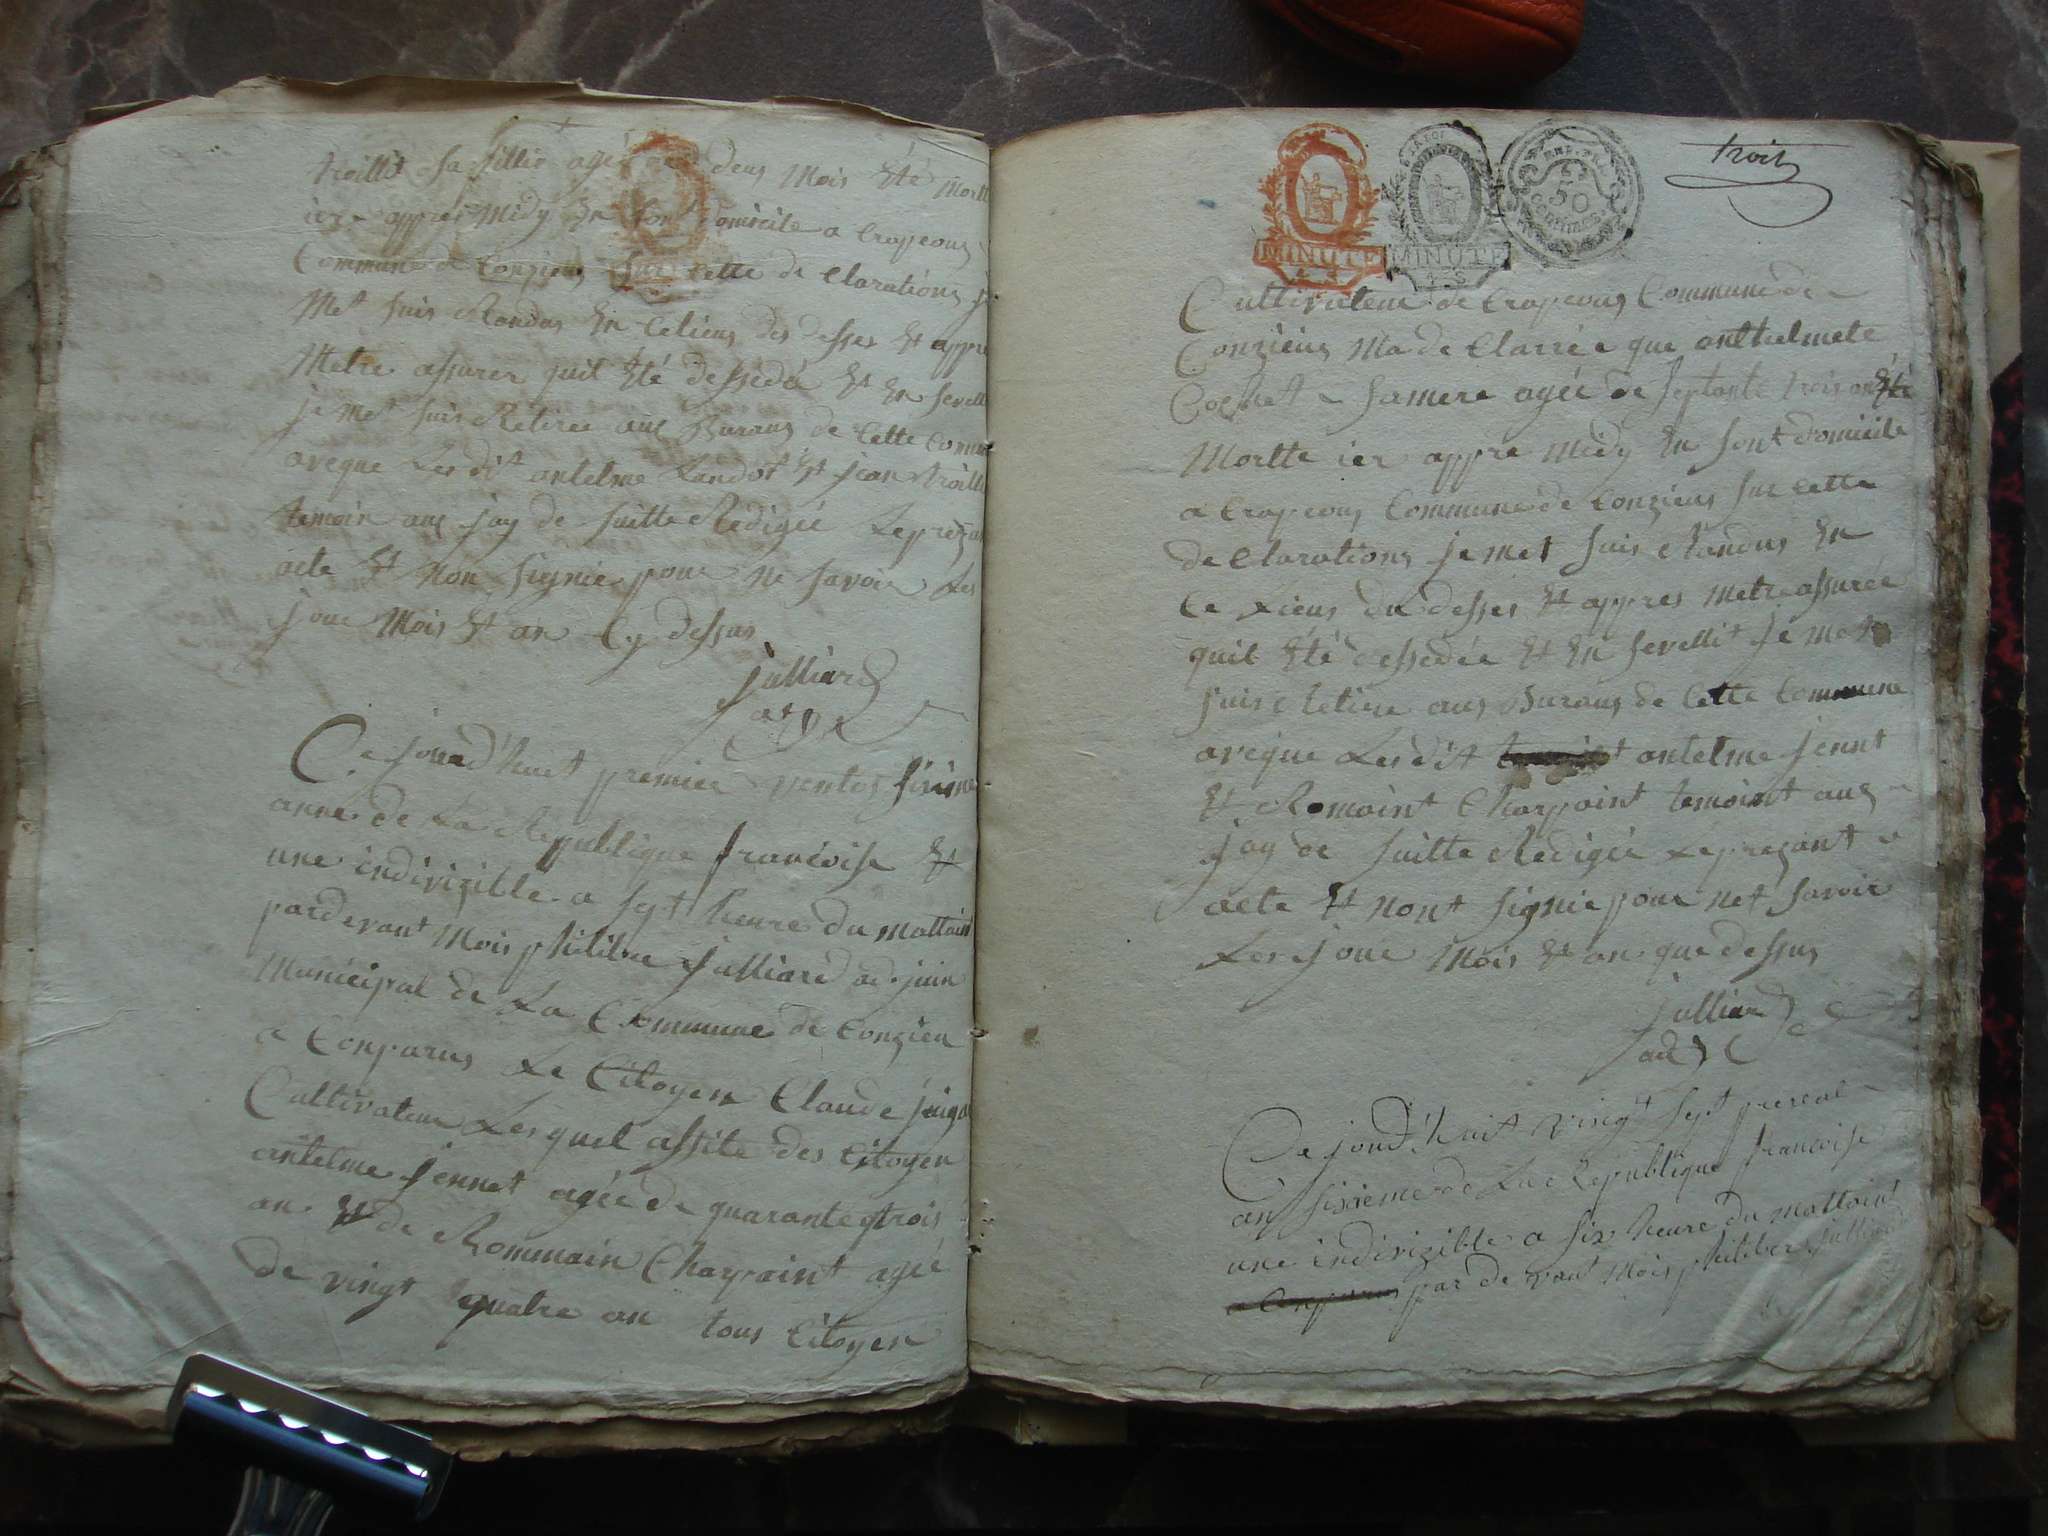 troillit sa fillie agé deus Mois Eté Mort
ier appres Midy En sont domicile a Crapeous
Commune de Conzieus sur Cette de Clarations
Met suis Randus En Celieus des desses Et appre
Metre assurer quit Eté dessédée Et En sevell
je Met suis Retiree aus Buraus de Cette Comm
aveque Les dit antelme Landot Et jean troill
temoin aus jay de suitte Redigée Le prezan
acte Et Non signie pour Ne savoir Les
jour Mois Et an Cy dessus
julliard
Ce jourd'huet premier ventos sisime
anne de La Republique francoise Et
une indivizible a sept heure du mattaint
pardevant Mois philibre julliard adjuin
Municipal de La Commune de Conzieu
a Conparus Le Citoyen Claude
Cultivateur Lesquel assite des Citoyen
antelme jennet agée de quarante trois
an Et de Rommain Charpaint agée
de vingt quatre an tous Citoyen
trois
MINUTE
MINUTE
50
centimes
Cultivateur de Crapeous Commune de
Conzieus Ma de Clarrée que anthelmete
Cochet samere agée de septante trois an Eté
Mortte ier appre Midy En sont domicile
a Crapeous Commune de Conzieus sur Cette
de Clarations je met suis Randus En
Ce Lieus du desses Et appres Metre assurée
quit Eté dessedée Et En sevellit je Met
suis Retire aus Buraus de Cette Commune
aveque Les dit antelme jennt
Et Romaint Charpaint temoint aus
jay de suitte Redigée Le prezant
acte Et Nont signie pour Net savoir
Les jour Mois Et an que dessus
julliard
Ce jourd'huit vingt sept prereal
an sisieme de La Republique francoise
une indivizible a six heure du mattaint
a Conparus par de vant Mois philiber julliard